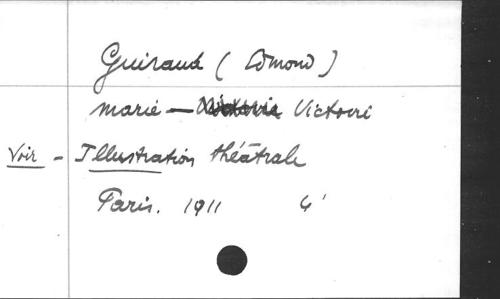 Guiraud (Edmond)
Marie - Victoire
Voir - Illustration théâtrale
Paris. 1911 4'